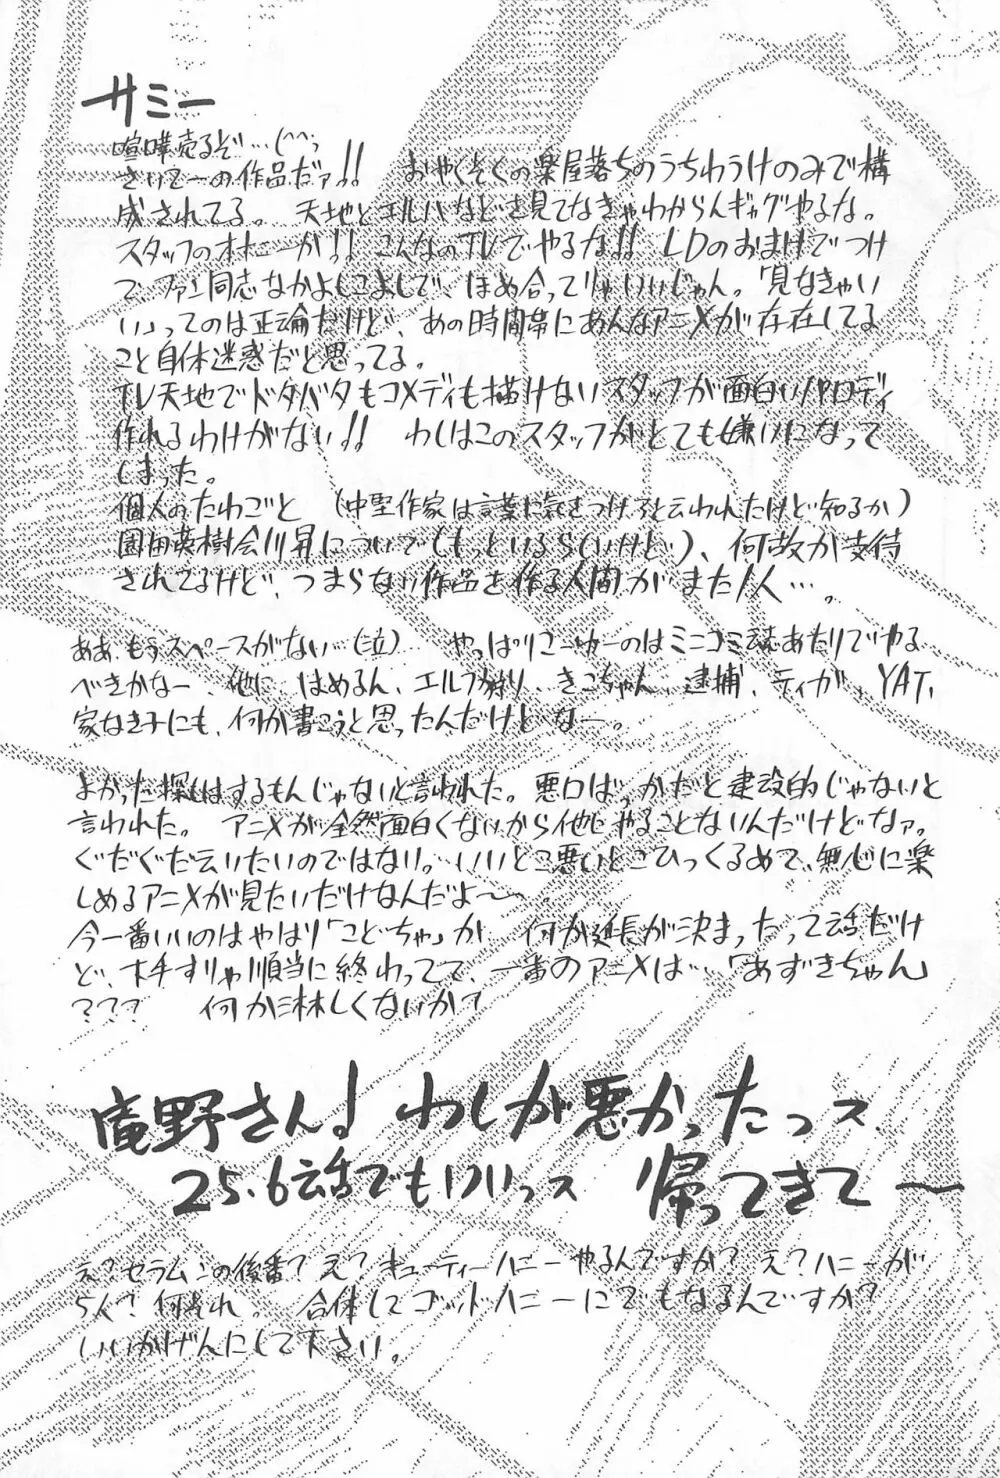 サミー
喧嘩売るぞ…(^^;
さいてーの作品だァ!! おやくそくの楽屋落ちのうちわうけのみで構
成されてる。 天地とエルハなどを見てなきゃわからんギャグやるな。
スタッフのオナニーか!! こんなのTVでやるな!! LDのおまけでつけ
て、ファン同志なかよしこよしで、ほめ合ってりゃいいじゃん。「見なきゃい
い」ってのは正論だけど、あの時間帯にあんなアニメが存在してる
こと自体迷惑だと思ってる。
TV天地でドタバタもコメディも描けないスタッフが面白いパロディ
作れるわけがない!! わしはこのスタッフがとても嫌いになって
しまった。
個人のたわごと (中堅作家は言葉に気をつけろと云われたけど知るか)
園田英樹会川昇について(もっといるらしいけど)、何故か支持
されてるけど、つまらない作品を作る人間がまた1人…。
ああ、もうスペースがない…(泣) やっぱりこーゆーのはミニコミ誌あたりでやる
べきかなー、他に はめるん、エルフ狩り、きこちゃん、逮捕、ティガ、YAT、
家なき子にも、何か書こうと思ったんだけどなー。
よかった探しはするもんじゃないと言われた。悪口ばっかだと建設的じゃないと
言われた。 アニメが全然面白くないから他にやることないんだけどなァ。
ぐだぐだ云いたいのではない。いいとこ悪いとこひっくるめて、無心に楽
しめるアニメが見たいだけなんだよ〜。
今一番いいのはやはり「こどちゃ」か 何か延長が決まったって話だけ
ど、ホチすりゃ順当に終わってて、一番のアニメは…「あずきちゃん」
??? 何か淋しくないか?
庵野さん! わしが悪かったっス
25.6話でもいいっス 帰ってきて〜
え?セラムンの後番?え?キューティーハニーやるんですか? え?ハニーが
5人?何それ。 合体してゴッドハニーにでもなるんですか?
いいかげんにして下さい。